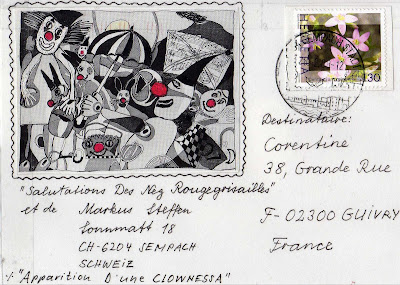 130
Destinataire:
Corentine
38, Grande Rue
F-02300 GUIVRY
France
"Salutations Des Nez Rougegrisailles"
et de Markus Steffen
Sonnmatt 18
CH-6204 SEMPACH
SCHWEIZ
"Apparition D'une CLOWNESSA"